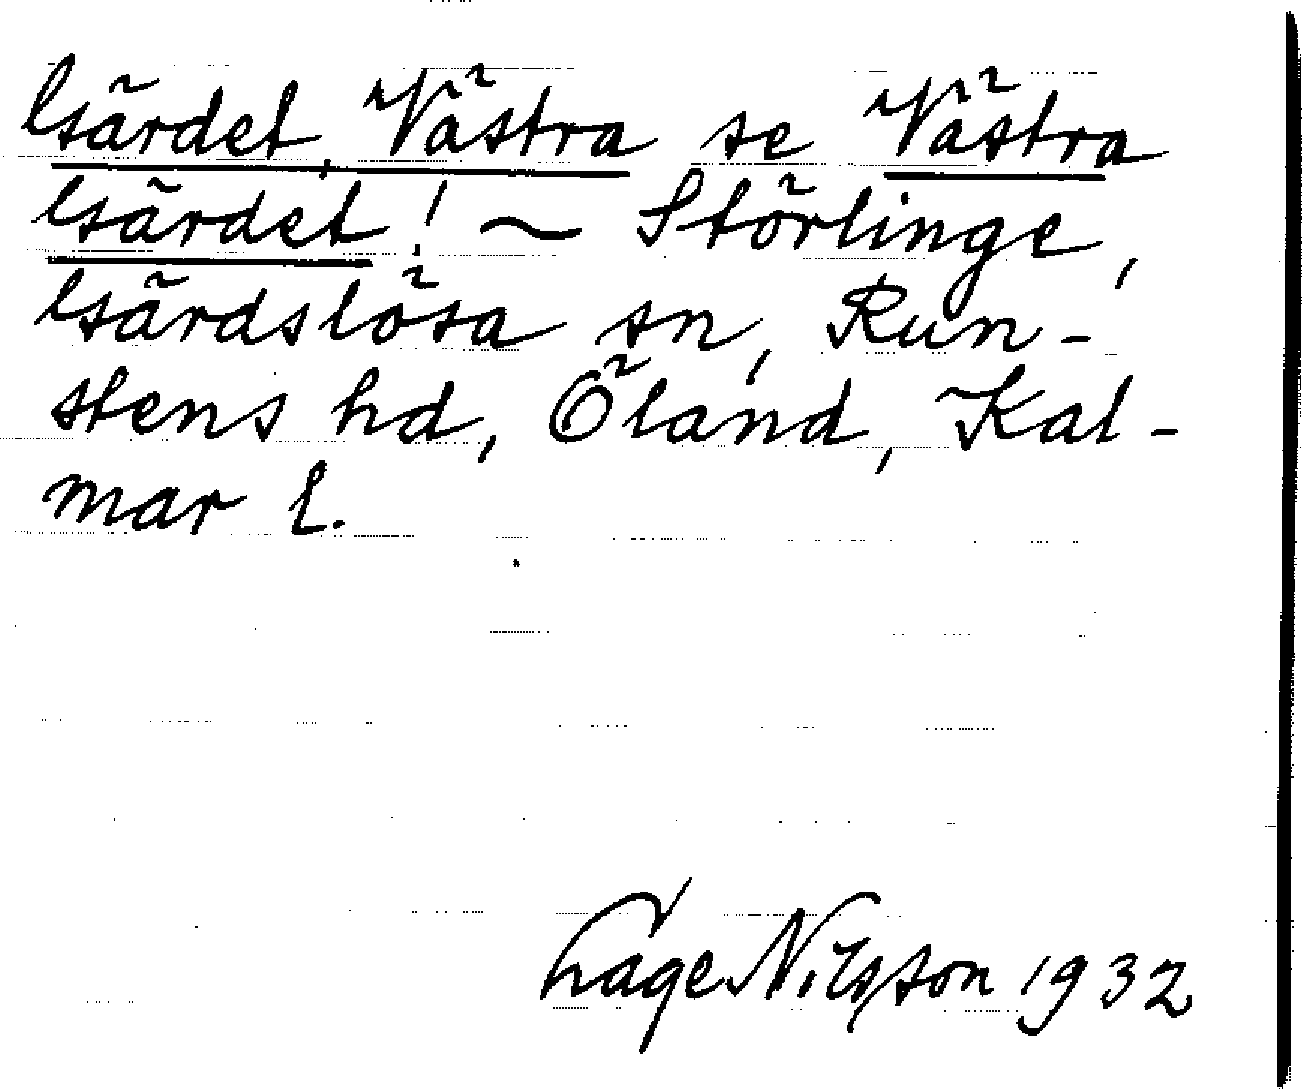 Gärdet, Västra se Västra
Gärdet! ~ Störlinge,
Gärdslösa sn, Run-
stens hd, Öland, Kal-
mar l.
Lage Nilsson 1932